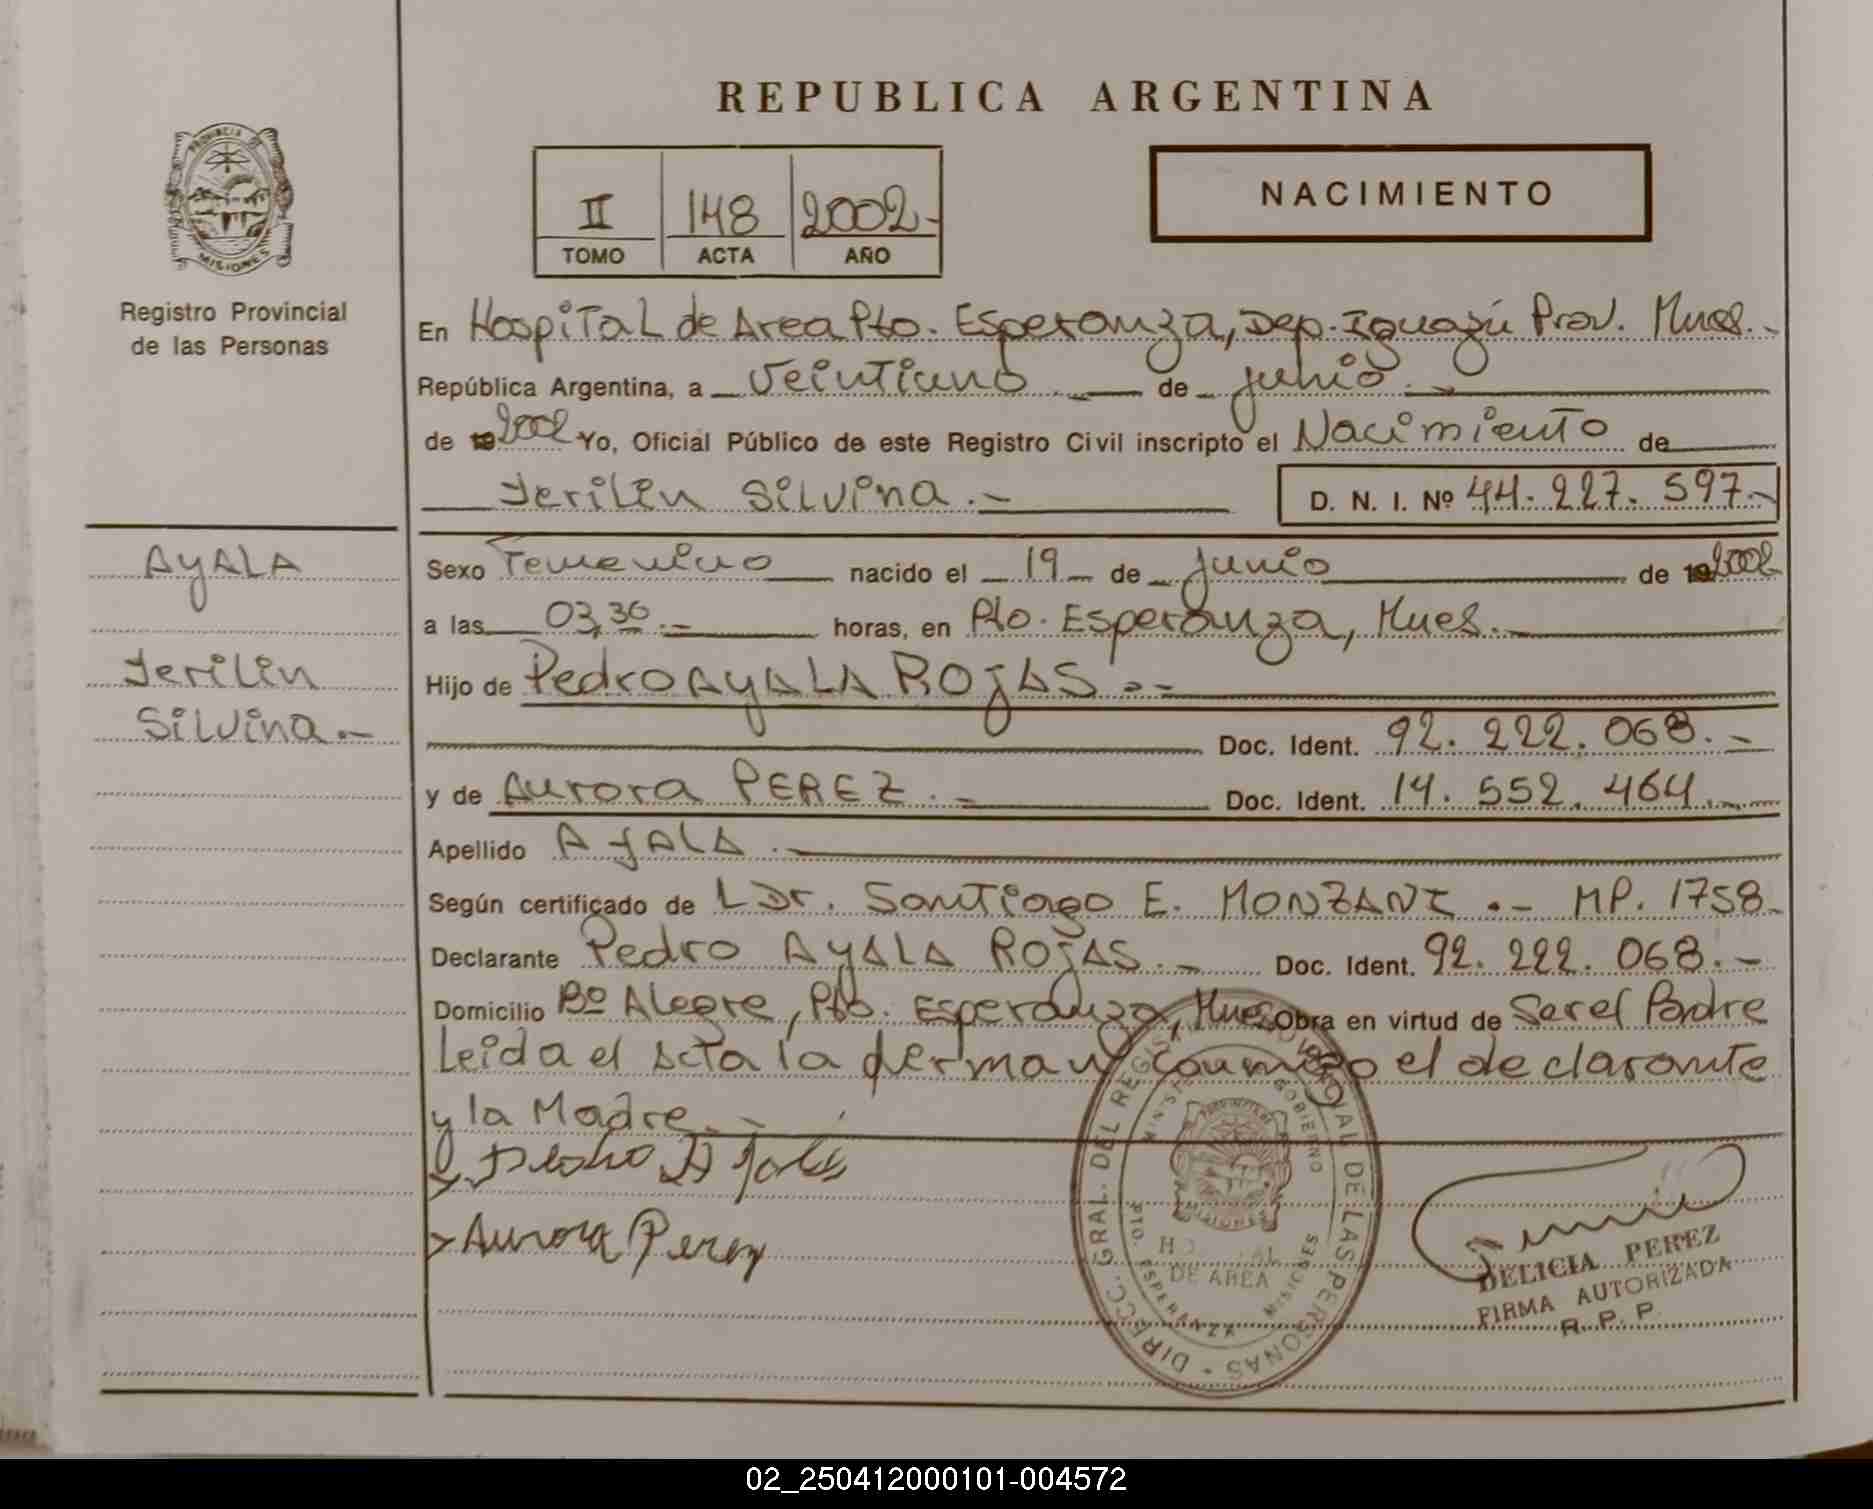 REPUBLICA ARGENTINA
PROVINCIA DE
MISIONES
Registro Provincial
de las Personas
II 148 2002.-
TOMO ACTA AÑO
NACIMIENTO
En Hospital de Area Pto. Esperanza, Dep. Iguazú Prov. Mnes.-
República Argentina, a veintiuno de junio.-
de 19 2002 Yo, Oficial Público de este Registro Civil inscripto el Nacimiento de
Yerilin Silvina.- D. N. I. Nº 44.227.597.-
AYALA
Yerilin
Silvina.-
Sexo Femenino nacido el 19 de junio de 19 2002
a las 03,30.- horas, en Pto. Esperanza, Mnes.-
Hijo de Pedro AYALA ROJAS.-
Doc. Ident. 92.222.068.-
y de Aurora PEREZ.- Doc. Ident. 14.552.464.
Apellido AYALA.-
Según certificado de L Dr. Santiago E. MONZANI.- MP. 1758.
Declarante Pedro AYALA ROJAS.- Doc. Ident. 92.222.068.-
Domicilio Bº Alegre, Pto. Esperanza, Mnes Obra en virtud de Ser el Padre
Leida el Acta la firman conmigo el declarante
y la Madre.-
Pedro Ayala
Aurora Perez
DIRECC. GRAL. DEL REGIST. PROVINCIAL DE LAS PERSONAS
GOBIERNO
DE AREA
PTO. ESPERANZA MISIONES
DELICIA PEREZ
FIRMA AUTORIZADA
R. P. P.
02_250412000101-004572